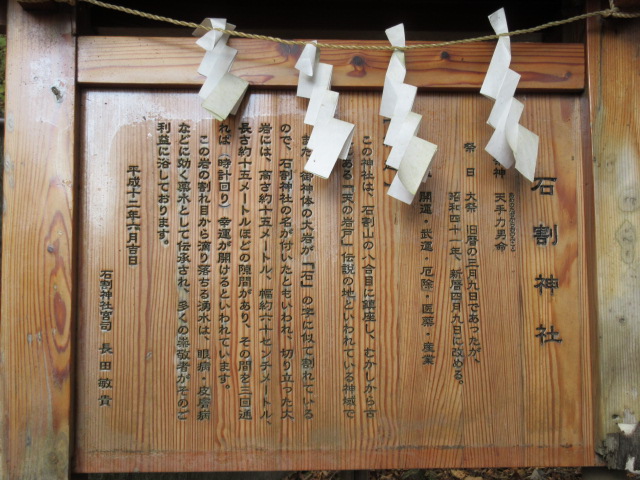 石割神社
神 天手力男命
祭日 大祭 旧暦の三月九日であったが、
昭和四十一年、新暦四月九日に改める。
開運・武運・厄除・医薬・産業
この神社は、石割山の八合目に鎮座し、むかしから古
ある「天の岩戸」伝説の地といわれている神域で
また 御神体の大岩が「石」の字に似て割れている
ので、石割神社の名が付いたともいわれ、切り立った大
岩には、高さ約十五メートル、幅約六十センチメートル、
長さ約十五メートルほどの隙間があり、その間を三回通
れば(時計回り)幸運が開けるといわれています。
この岩の割れ目から滴り落ちる湧水は、眼病・皮膚病
などに効く薬水として伝承され、多くの崇敬者がそのご
利益に浴しております。
平成十二年六月吉日
石割神社宮司 長田敏貴